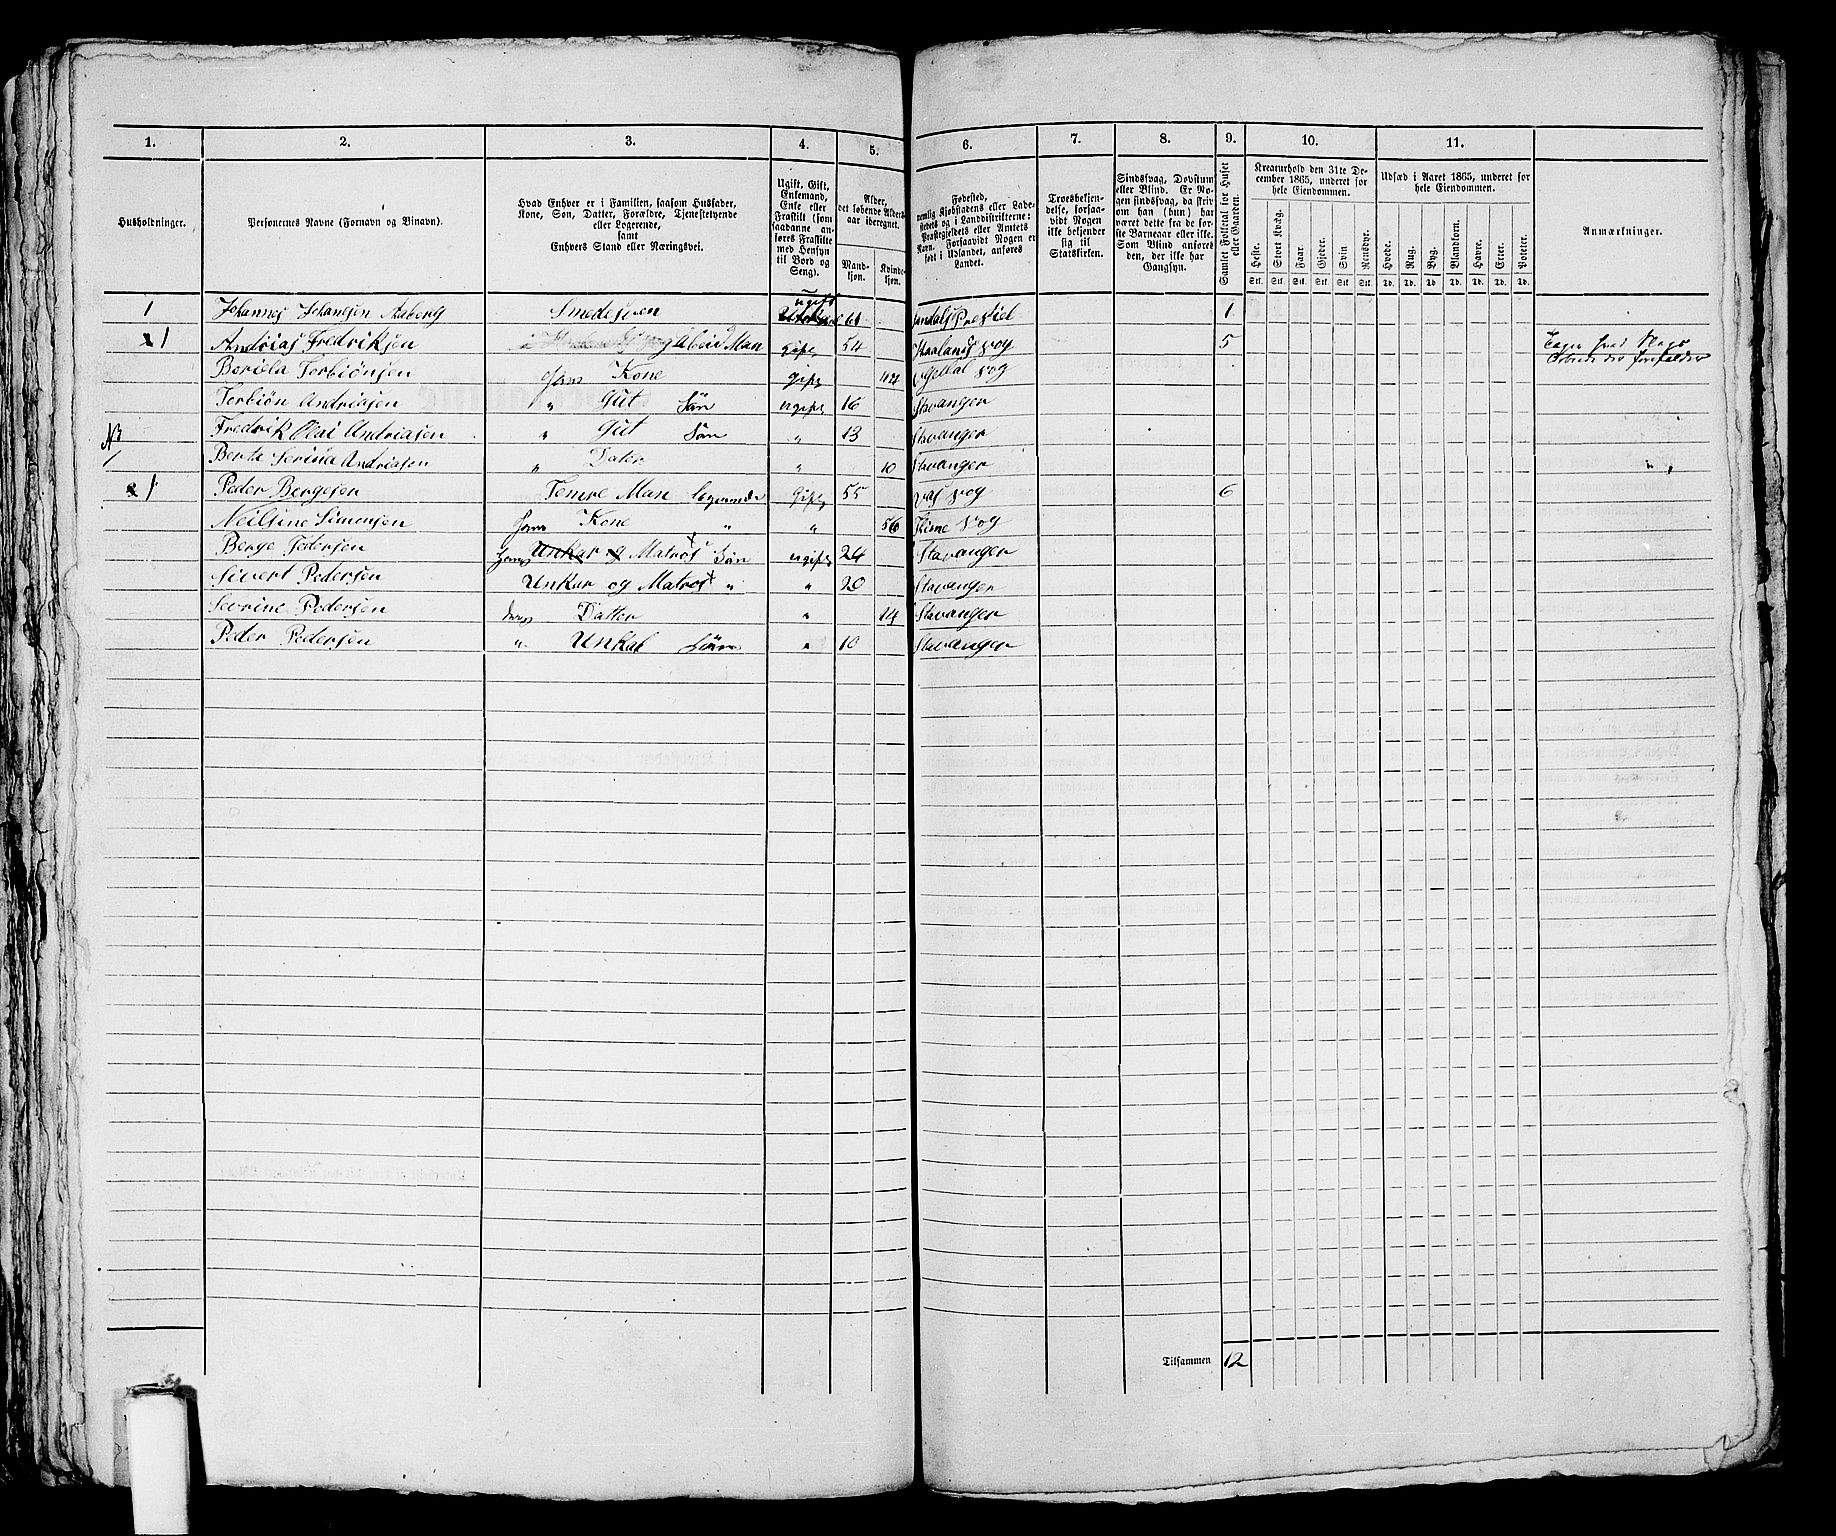 1. 2. 3. 4. 5. 6. 7. 8. 9. 10. 11.
Husholdninger.
Personernes Navne (Fornavn og Binavn).
Hvad Enhver er i Familien, saasom Husfader,
Kone, Søn, Datter, Forældre, Tjenestetyende
eller Logerende,
samt
Enhvers Stand eller Næringsvei.
Ugift, Gift,
Enkemand,
Enke eller
Fraskilt (som
saadanne an-
føres Fraskilte
med Hensyn
til Bord og
Seng).
Alder,
det løbende Alders-
aar iberegnet.
Mand-
kjøn.
Kvinde-
kjøn.
Fødested,
nemlig Kjøbstadens eller Lade-
stedets og i Landdistrikterne:
Præstegjeldets eller Amtets
Navn. Forsaavidt Nogen er
født i Udlandet, anføres
Landet.
Troesbekjen-
delse, forsaa-
vidt Nogen
ikke bekjender
sig til
Statskirken.
Sindssvag, Døvstum
eller Blind. Er No-
gen sindssvag, da skriv
om han (hun) har
været dette fra de før-
ste Barneaar eller ikke.
Som Blind anføres
den, der ikke har
Gangsyn.
Samlet Folketal for Huset
eller Gaarden.
Kreaturhold den 31te De-
cember 1865, underet for
hele Eiendommen.
Heste. Stort Kvæg. Faar. Gjeder. Svin Rensdyr.
Stk. Stk. Stk. Stk. Stk. Stk.
Udsæd i Aaret 1865, underet for
hele Eiendommen.
Hvede. Rug. Byg. Blandkorn. Havre. Erter. Poteter.
Td. Td. Td Td. Td. Td. Td.
Anmærkninger.
1 Johannes Johansen Aaberg Smedesven ugift 61 1
1 Andrias Fredriksen Arbeid Man gift 54 5
Berta Torbiönsen Hans Kone gift 42
Torbiön Andriasen " Gut Sön ugift 16 Stavanger
Fredrik Olai Andriasen " Gut Sön " 13 Stavanger
Berta Serina Andriasen " Dater " 10 Stavanger
1 Peder Bergesen Temre Man Logerende gift 55 6
Neilsine Simonsen Hans Kone " " 56
Berge Pedersen Hans Unkar og Matros Sön ugift 24 Stavanger
Sivert Pedersen Unkar og Matros " " 20 Stavanger
Sevrine Pedersen deres Datter " 14 Stavanger
Peder Pedersen " Unkal Sön " 10 Stavanger
Tilsammen 12